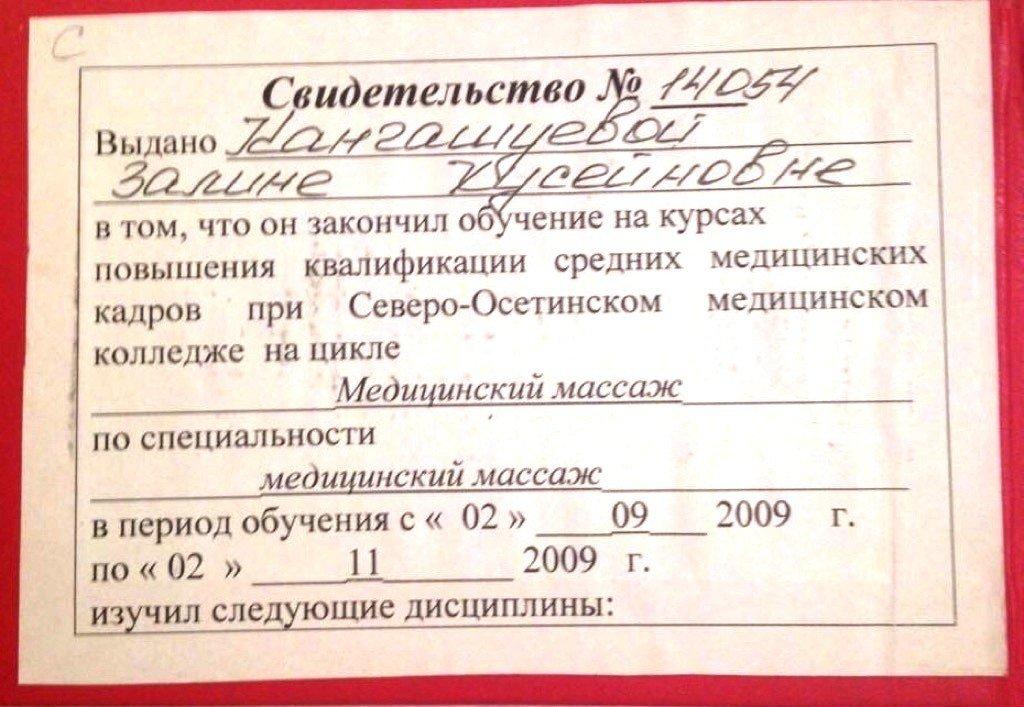 С
Свидетельство № 14054
Выдано Кангашуевой
Залине Хусейновне
в том, что он закончил обучение на курсах
повышения квалификации средних медицинских
кадров при Северо-Осетинском медицинском
колледже на цикле
Медицинский массаж
по специальности
медицинский массаж
в период обучения с « 02 » ____09___ 2009 г.
по « 02 » _____11_______ 2009 г.
изучил следующие дисциплины: